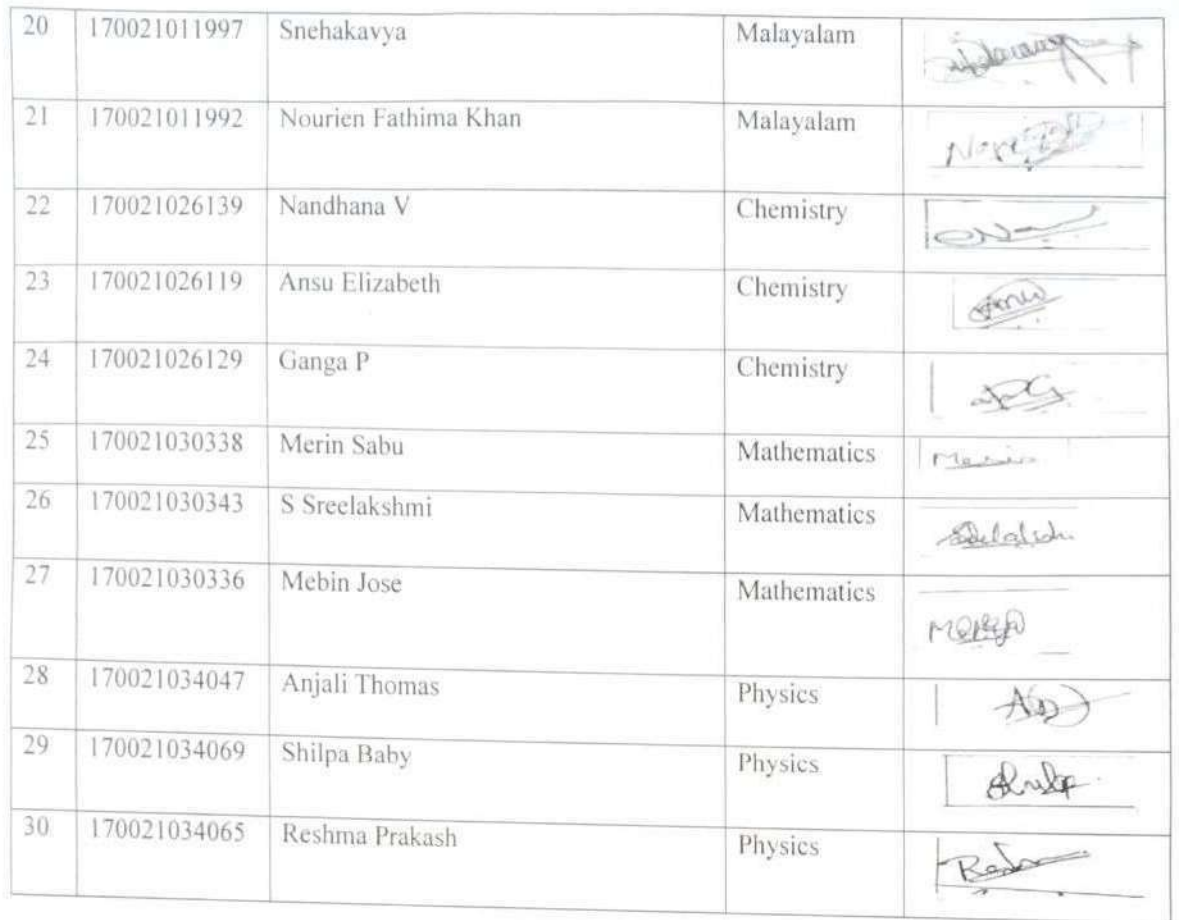 20 170021011997 Snehakavya Malayalam
21 170021011992 Nourien Fathima Khan Malayalam
22 170021026139 Nandhana V Chemistry
23 170021026119 Ansu Elizabeth Chemistry
24 170021026129 Ganga P Chemistry
25 170021030338 Merin Sabu Mathematics
26 170021030343 S Sreelakshmi Mathematics
27 170021030336 Mebin Jose Mathematics
28 170021034047 Anjali Thomas Physics
29 170021034069 Shilpa Baby Physics
30 170021034065 Reshma Prakash Physics